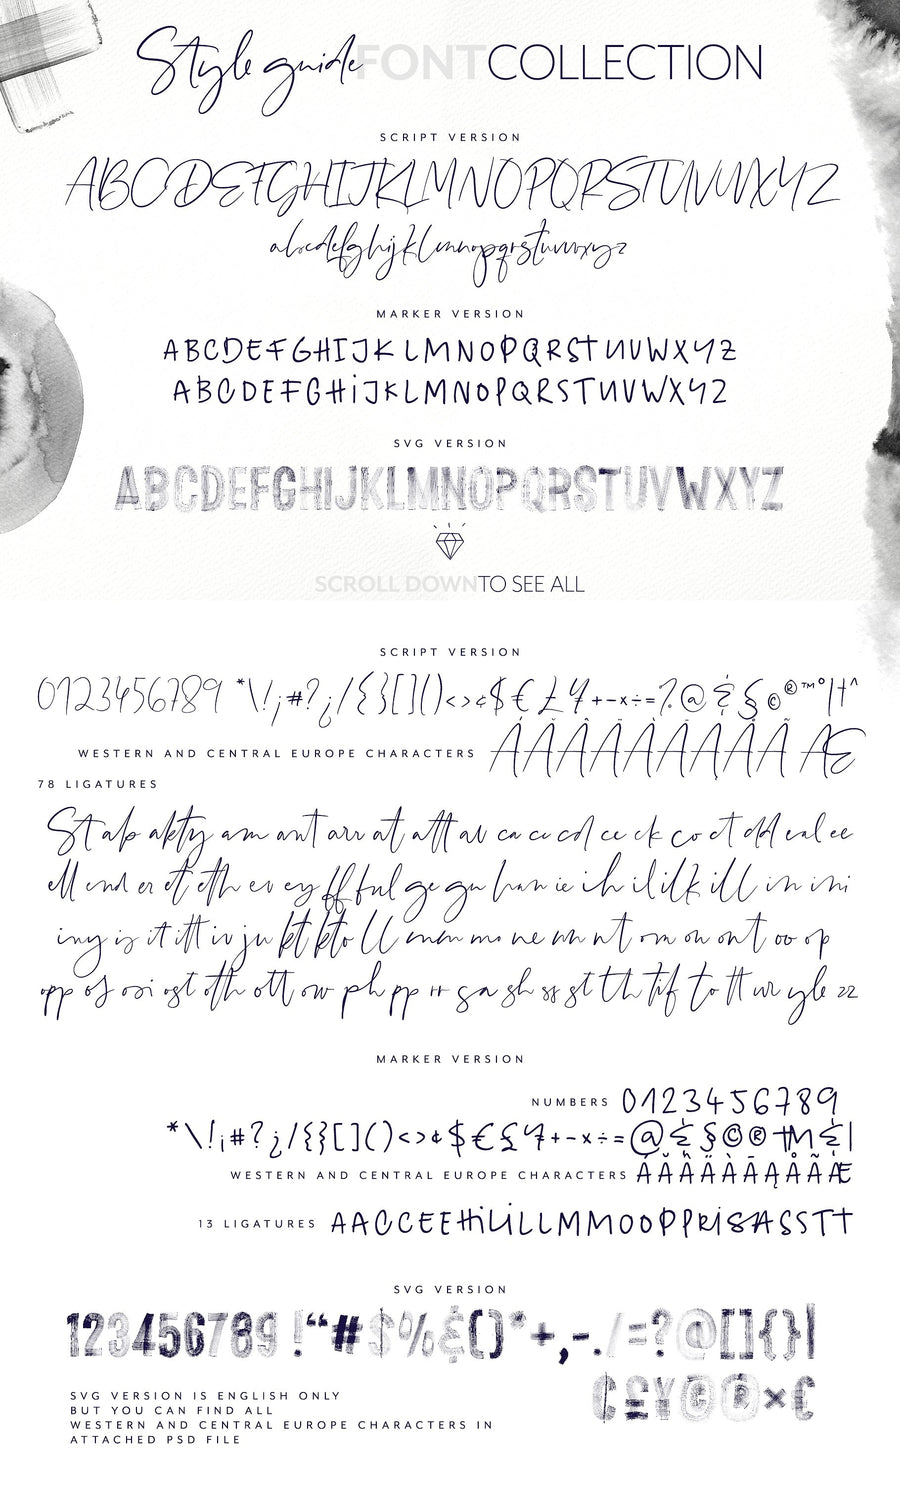 Style guide FONT COLLECTION
SCRIPT VERSION
ABCDEFGHIJKLMNOPQRSTUVWXYZ
abcdefghijklmnopqrstuvwxyz
MARKER VERSION
ABCDEFGHIJKLMNOPQRSTUVWXYZ
ABCDEFGHIJKLMNOPQRSTUVWXYZ
SVG VERSION
ABCDEFGHIJKLMNOPQRSTUVWXYZ
SCROLL DOWN TO SEE ALL
SCRIPT VERSION
0123456789 *\!¡#?¿/{}[]()<>¢$€£¥+-×÷=?@&§©®™°|†^
WESTERN AND CENTRAL EUROPE CHARACTERS
78 LIGATURES
St ab akty am ant arr at att av ca cc cd ce ck co ct dd ea el ee
ell end er et eth ev ey ff ful ge gu han ie ih il ilk ill in ini
ing is it itt iv ju kt kto ll mm mo ne nn nt om on ont oo op
opp of osi ost oth ott ow ph pp rr sa sh ss st th tif to tt ur yle zz
MARKER VERSION
NUMBERS 0123456789
*\!¡#?¿/{}[]()<>¢$€£¥+-×÷=@&§©®™&|
WESTERN AND CENTRAL EUROPE CHARACTERS
13 LIGATURES AACCEEHiLiLLMMOOPPRiSASSTT
SVG VERSION
123456789 !“#$%&()*+,-./=?@[]{}|
¢£¥©®×€
SVG VERSION IS ENGLISH ONLY
BUT YOU CAN FIND ALL
WESTERN AND CENTRAL EUROPE CHARACTERS IN
ATTACHED PSD FILE